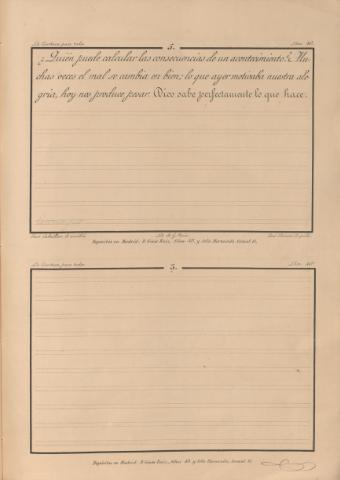 La Escritura para todos.
5.
Núm. 40.
¿Quién puede calcular las consecuencias de un acontecimiento? Mu-
chas veces el mal se cambia en bien; lo que ayer motivaba nuestra ale-
gría, hoy nos produce pesar. Dios sabe perfectamente lo que hace.
Lit. de G.
Depósitos en Madrid: D. Pozas, y Julio Hernando, Arenal 11.
La Escritura para todos.
5.
Núm. 40.
Depósitos en Madrid: y Julio Hernando, Arenal 11.